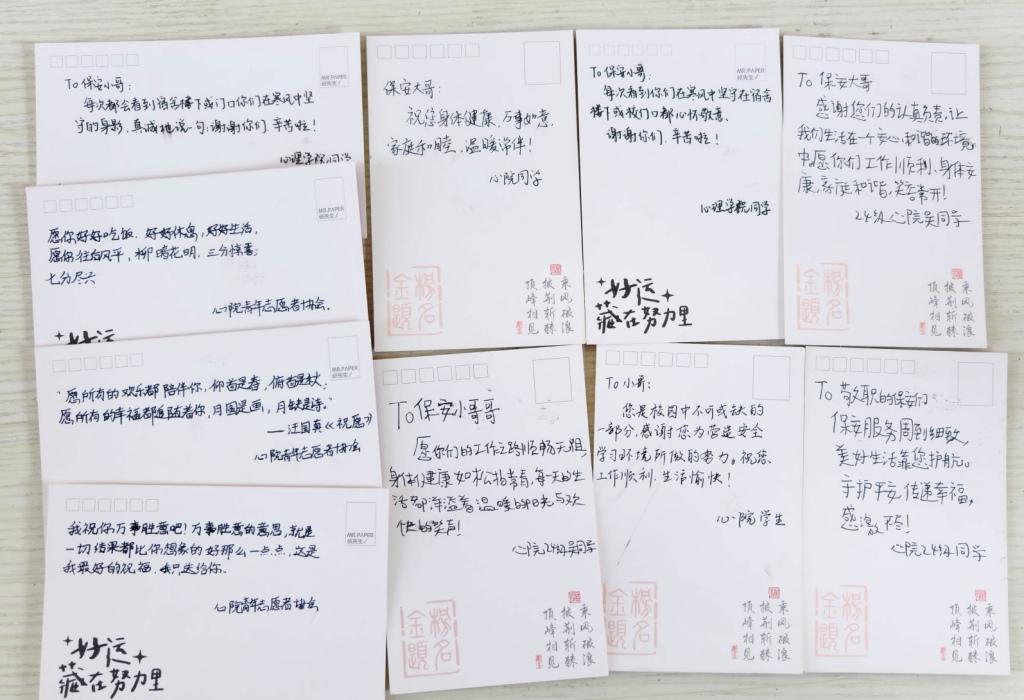 MR.PAPER
纸先生/
To 保安小哥：
每次都会看到宿舍楼下或门口你们在寒风中坚
守的身影，真诚地说一句：谢谢你们，辛苦啦！
心理学院同学
MR.PAPER
纸先生/
愿你好好吃饭，好好休息，好好生活，
愿你往后风平，柳暗花明，三分惊喜；
七分尽兴
心院青年志愿者协会.
好运
MR.PAPER
纸先生/
“愿所有的欢乐都陪伴你，仰首是春，俯首是秋；
愿所有的幸福都追随着你，月圆是画，月缺是诗。”
——汪国真《祝愿》
心院青年志愿者协会
MR.PAPER
纸先生/
我祝你万事胜意吧！万事胜意的意思，就是
一切结果都比你想象的好那么一点点，这是
我最好的祝福，我只送给你.
心院青年志愿者协会
好运
藏在努力里
保安大哥：
祝您身体健康，万事如意，
家庭和睦，温暖常伴！
心院同学
金题
杨名
乘风破浪
披荆斩棘
顶峰相见
MR.PAPER
纸先生/
To 保安小哥：
每次看到你们在寒风中坚守在宿舍
楼下或校门口都心怀敬意，
谢谢你们，辛苦啦！
心理学院同学
好运
藏在努力里
To 保安大哥
感谢您们的认真负责，让
我们生活在一个安心和谐的环境
中愿你们工作顺利、身体安
康，家庭和谐，笑容常开！
24级心院吴同学
金题
杨名
乘风破浪
披荆斩棘
顶峰相见
To 保安小哥哥
愿你们的工作之路顺畅无阻，
身体健康如松柏常青，每天的生
活都洋溢着温暖的阳光与欢
快的笑声！
心院24级吴同学
金题
杨名
乘风破浪
披荆斩棘
顶峰相见
To 小哥：
您是校园中不可或缺的
一部分，感谢您为营造安全
学习环境所做的努力。祝您
工作顺利，生活愉快！
心院学生
金题
杨名
乘风破浪
披荆斩棘
顶峰相见
To 敬职的保安们
保安服务周到细致，
美好生活靠您护航。
守护平安，传递幸福，
感激不尽！
心院24级同学
金题
杨名
乘风破浪
披荆斩棘
顶峰相见